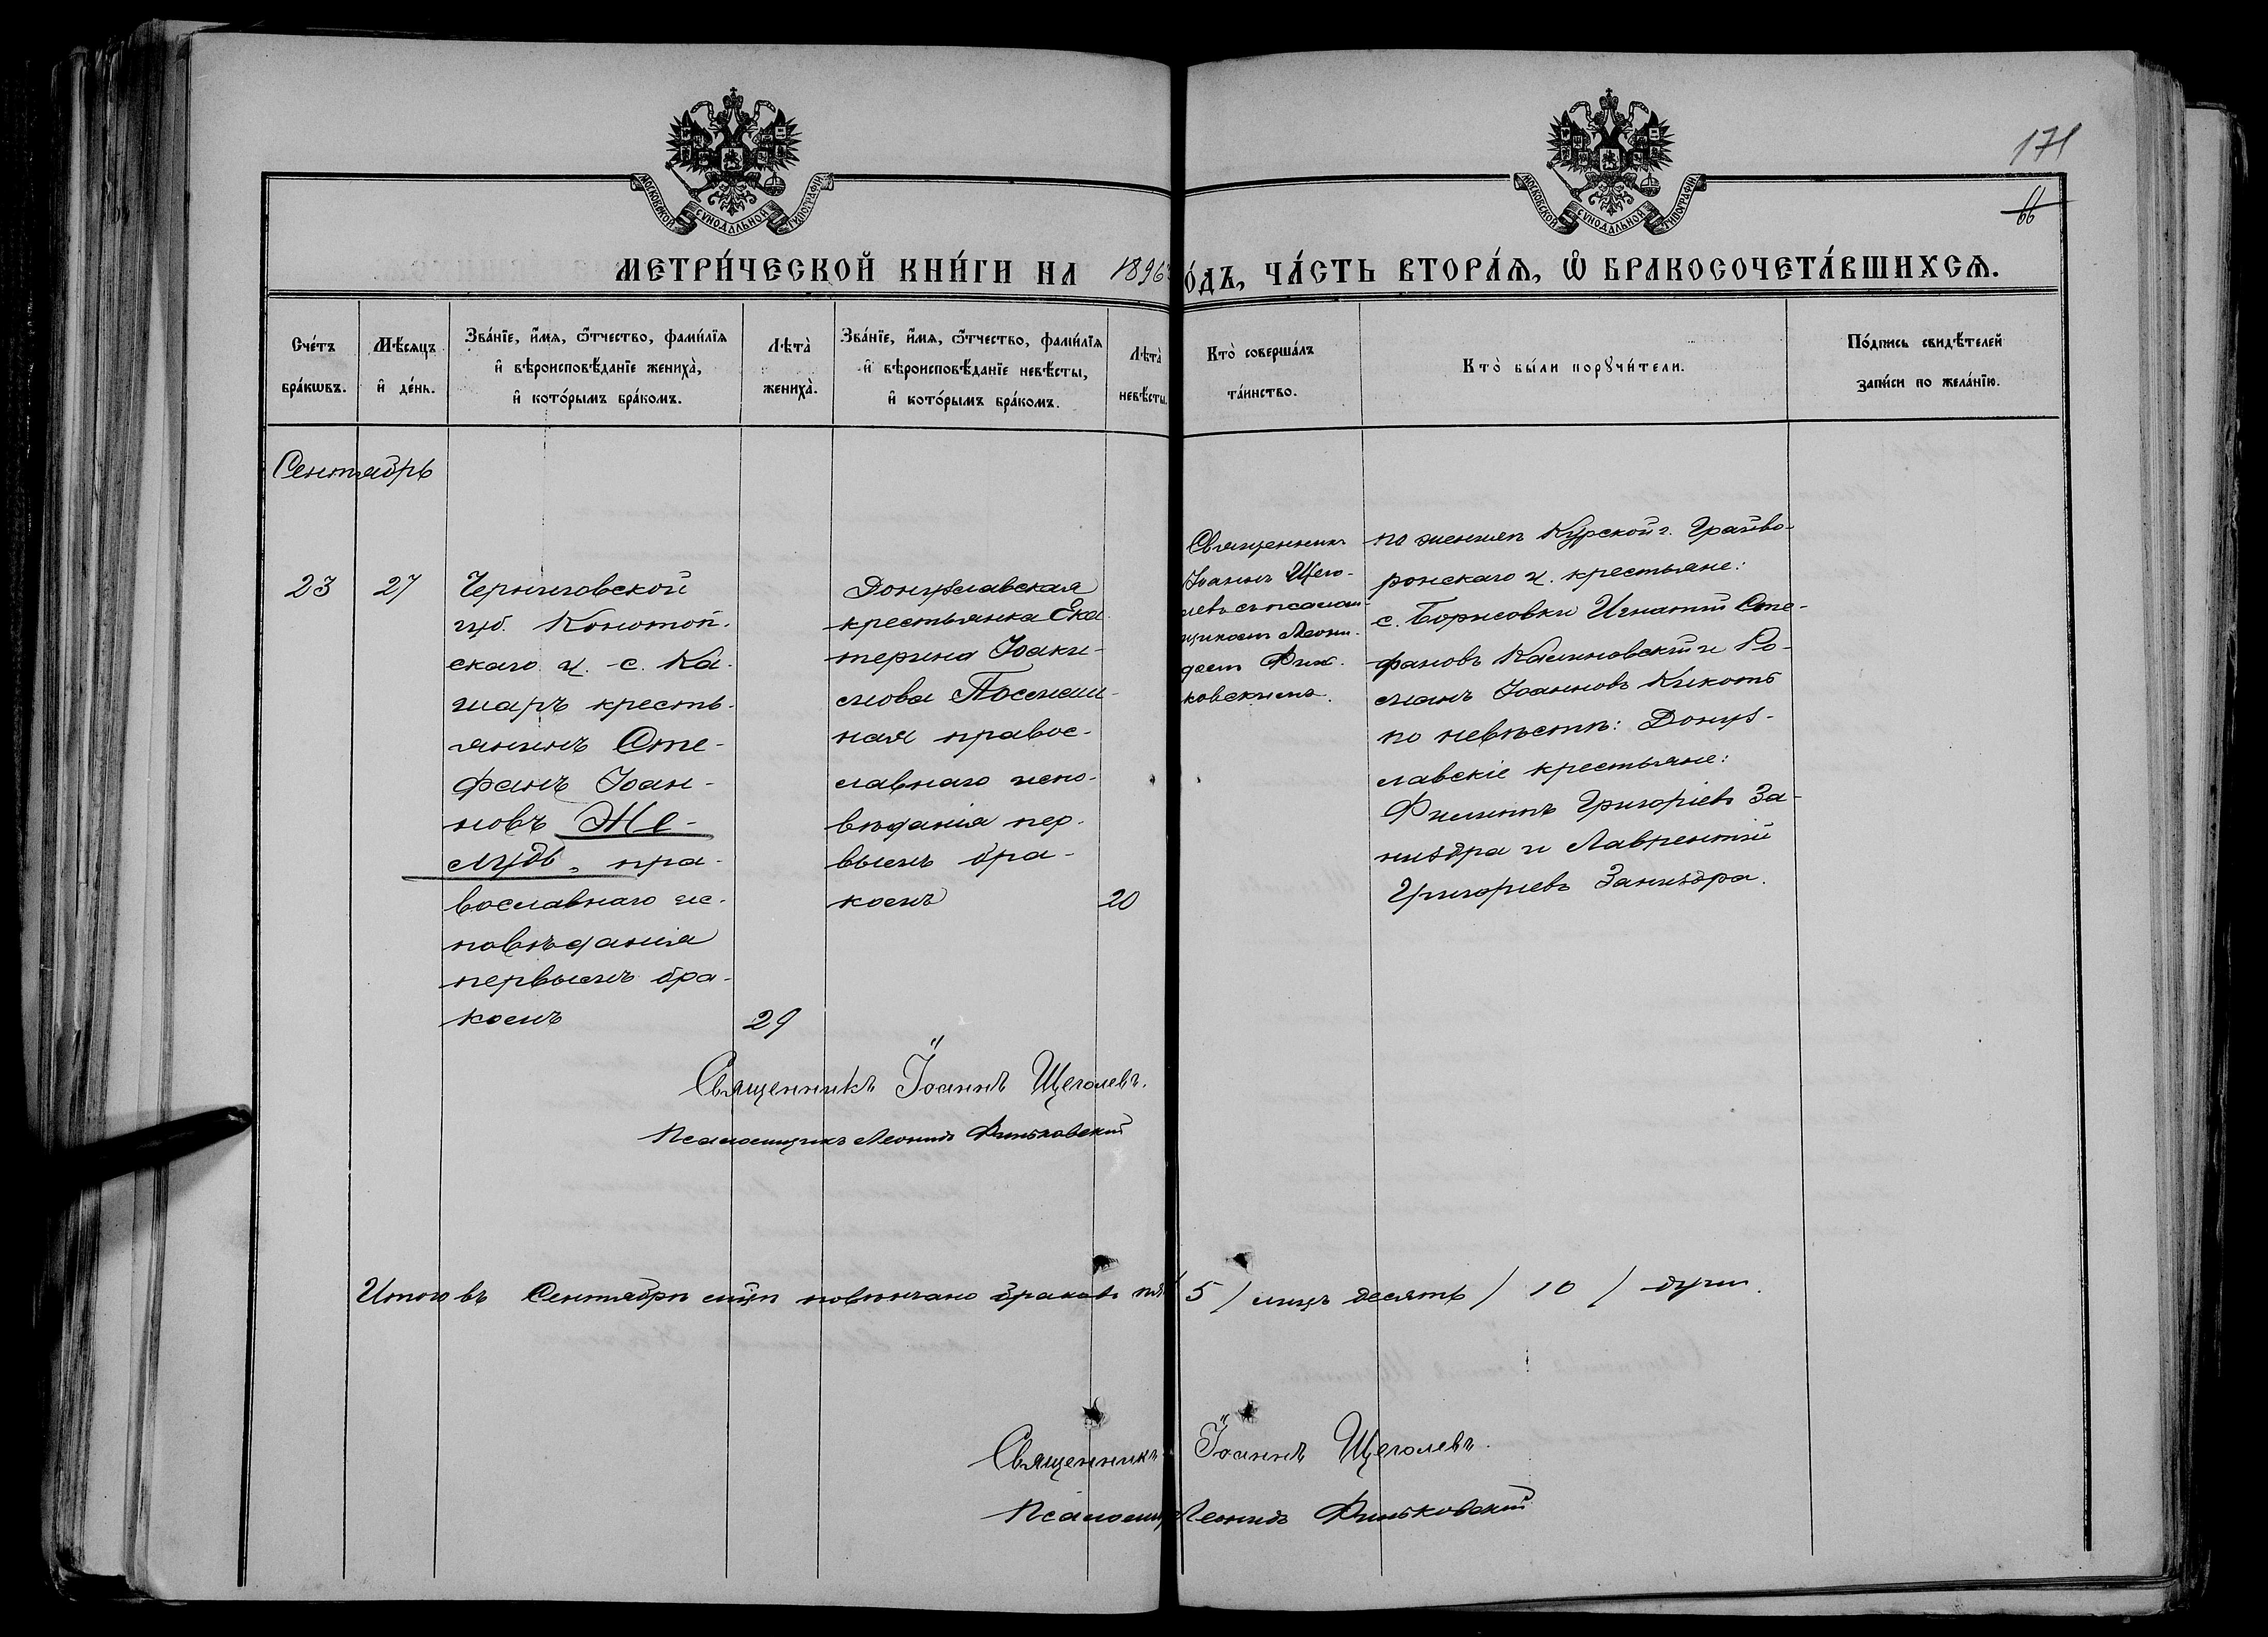 171
66
МОСКОВСКОЙ СѴНОДАЛЬНОЙ ТИПОГРАФІИ
МОСКОВСКОЙ СѴНОДАЛЬНОЙ ТИПОГРАФІИ
МЕТРИ́ЧЕСКОЙ КНИ́ГИ НА 1896 го́дъ, ЧА́СТЬ ВТОРА́Ѧ, Ѽ БРАКОСОЧЕТА́ВШИХСѦ.
Сче́тъ
бра́кѡвъ.
Мѣ́сяцъ
и҆ де́нь.
Зва́нїе, и҆́мѧ, ѻ҆́тчество, фами́лїѧ
и҆ вѣроисповѣ́данїе жениха̀,
и҆ кото́рымъ бра́комъ.
Лѣта̀
жениха̀.
Зва́нїе, и҆́мѧ, ѻ҆́тчество, фами́лїѧ
и҆ вѣроисповѣ́данїе невѣ́сты,
и҆ кото́рымъ бра́комъ.
Лѣта̀
невѣ́сты.
Кто̀ соверша́лъ
та́инство.
Кто̀ бы́ли порꙋчи́тели.
По́дпись свидѣ́телей
за́писи по жела́нїю.
Сентябрь
23
27
Черниговской
губ. Конотоп-
скаго у. с. Ка-
шаръ кресть-
янинъ Сте-
фанъ Іоан-
новъ Же-
лудь, пра-
вославнаго ис-
повѣданія
первымъ бра-
комъ
29
Донузлавская
крестьянка Ека-
терина Іоаки-
мова
ная правос-
лавнаго испо-
вѣданія пер-
вымъ бра-
комъ
20
Священникъ
Іоаннъ Щего-
левъ съ псалом-
щикомъ Леони-
домъ Финь-
ковскимъ.
по жениху Курской г. Грайво-
ронскаго у. крестьяне:
с. Борисовки Игнатій Сте-
фановъ Калиновскій и Ро-
манъ Іоанновъ Кикоть
по невѣстѣ: Донуз-
лавскіе крестьяне:
Филиппъ Григоріевъ За-
низдра и Лаврентій
Григорьевъ Заниздра.
Священникъ Іоаннъ Щеголевъ.
Псаломщикъ Леонидъ Финьковскій
Итого въ Сентябрѣ мцѣ повѣнчано браковъ пять / 5 / лицъ десять / 10 / душ.
Священникъ Іоаннъ Щеголевъ.
Псаломщ Леонидъ Финьковскій